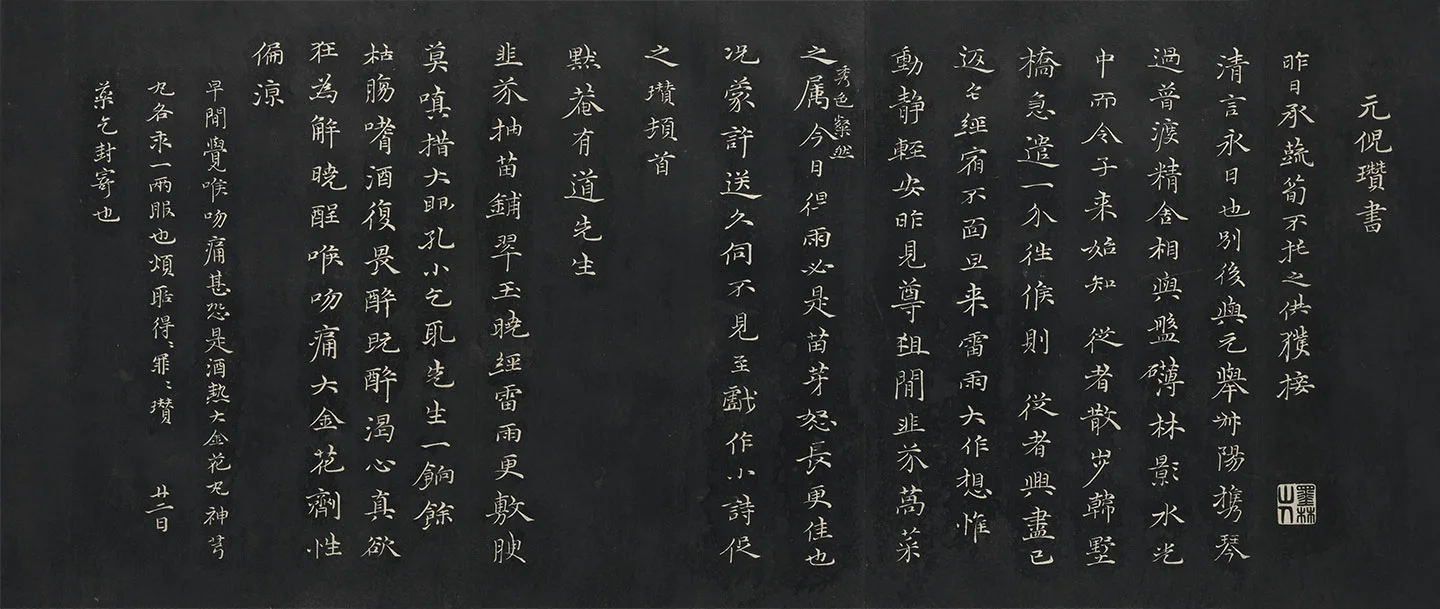 元倪瓚書
昨日承蔬筍不托之供獲接
清言永日也別後與元舉叔陽携琴
過普渡精舍相與盤礴林影水光
中而令子来始知 從者散步韓墅
橋急遣一介往候則 從者興盡已
返乞經宿不面旦来雷雨大作想惟
動靜輕安昨見尊俎間韭芥萵菜
之属秀色粲然今日得雨必是苗芽怒長更佳也
况蒙許送久伺不見至戲作小詩促
之瓚頓首
默菴有道先生
韭芥抽苗鋪翠玉曉經雷雨更敷腴
莫嗔措大眼孔小乞取先生一餉餘
枯腸嗜酒復畏醉既醉渴心真欲
狂為解曉酲喉吻痛大金花劑性
偏涼
早間覺喉吻痛甚恐是酒熱大金花丸神芎
丸各求一兩服也煩聒得得罪罪瓚 廿二日
藥乞封寄也
墨林山人